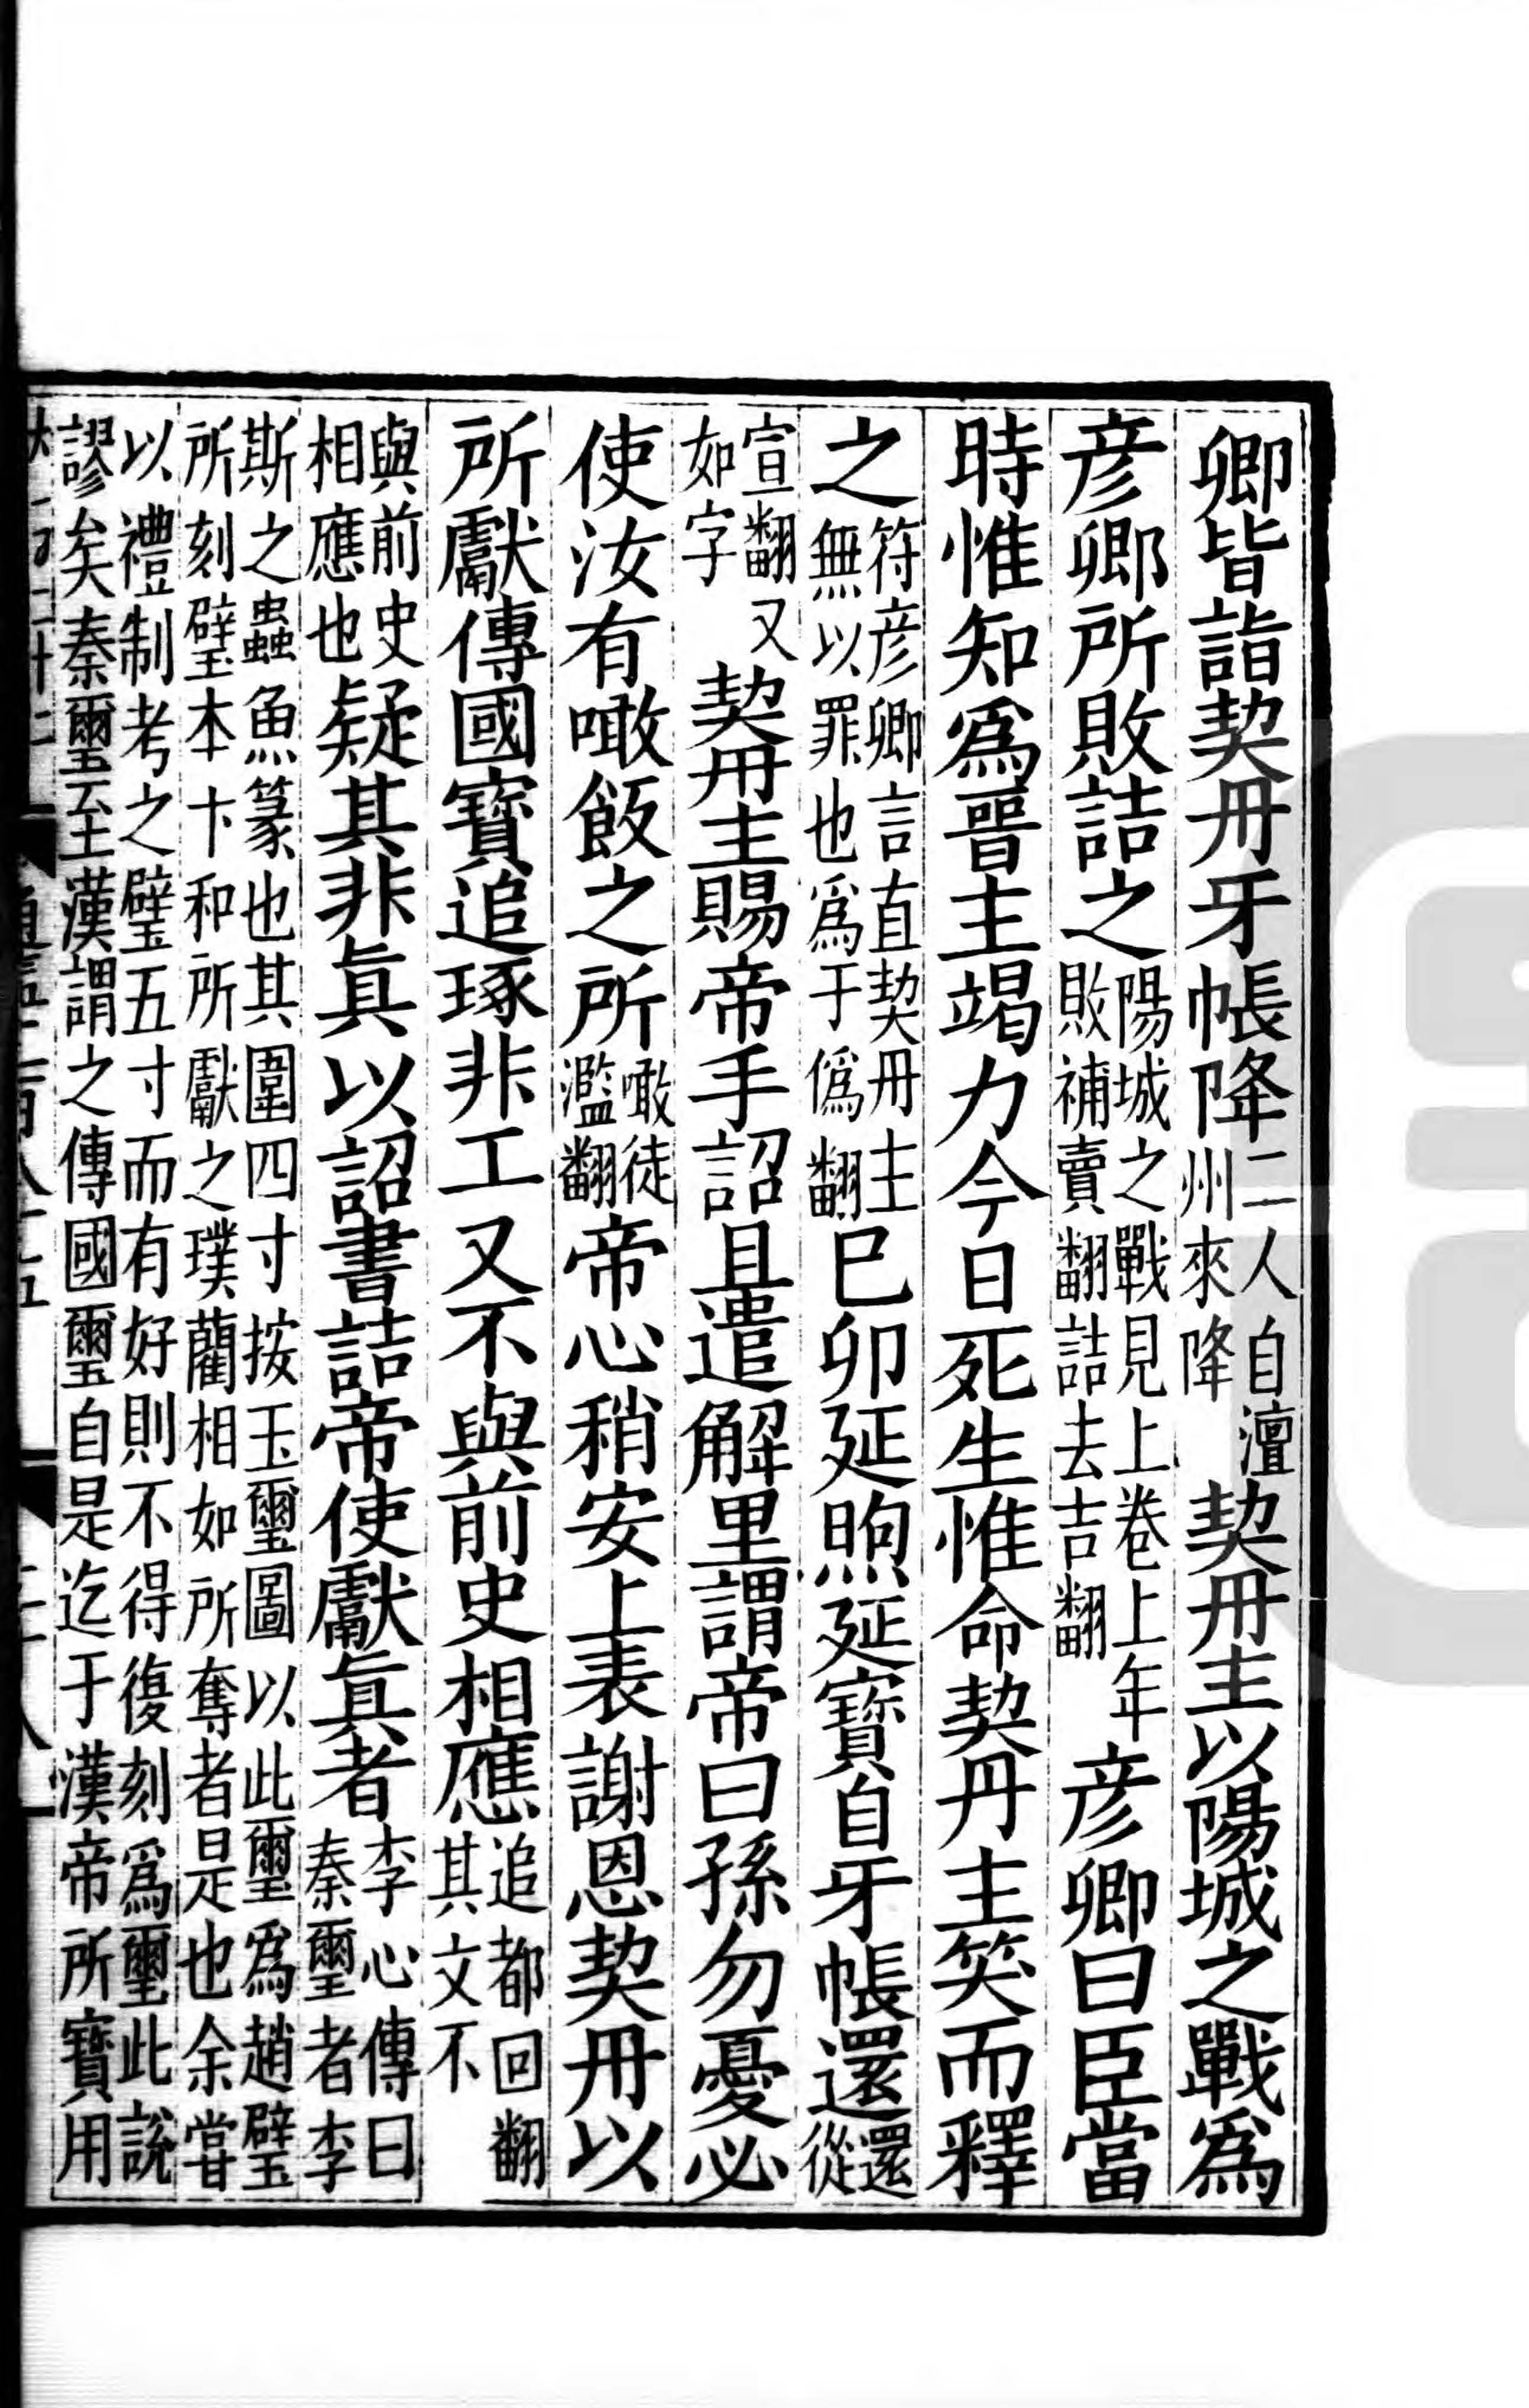 卿皆詣契丹牙帳降二人自澶州來降契丹主以陽城之戰爲
彦卿所敗詰之陽城之戰見上卷上年敗補賣翻詰去吉翻彦卿曰臣當
時惟知爲晉主竭力今日死生惟命契丹主笑而釋
之符彦卿言直契丹主無以罪也爲于僞翻巳卯延煦延寶自牙帳還還從
宣翻又如字契丹主賜帝手詔且遣解里謂帝曰孫勿憂必
使汝有噉飯之所噉徒濫翻帝心稍安上表謝恩契丹以
所獻傳國寶追琢非工又不與前史相應追都回翻其文不
與前史相應也疑其非眞以詔書詰帝使獻眞者李心傳曰秦璽者李
斯之蟲魚篆也其圍四寸按玉璽圖以此璽爲趙璧
所刻璧本卞和所獻之璞藺相如所奪者是也余嘗
以禮制考之璧五寸而有好則不得復刻爲璽此說
謬矣秦璽至漢謂之傳國璽自是迄于漢帝所寶用